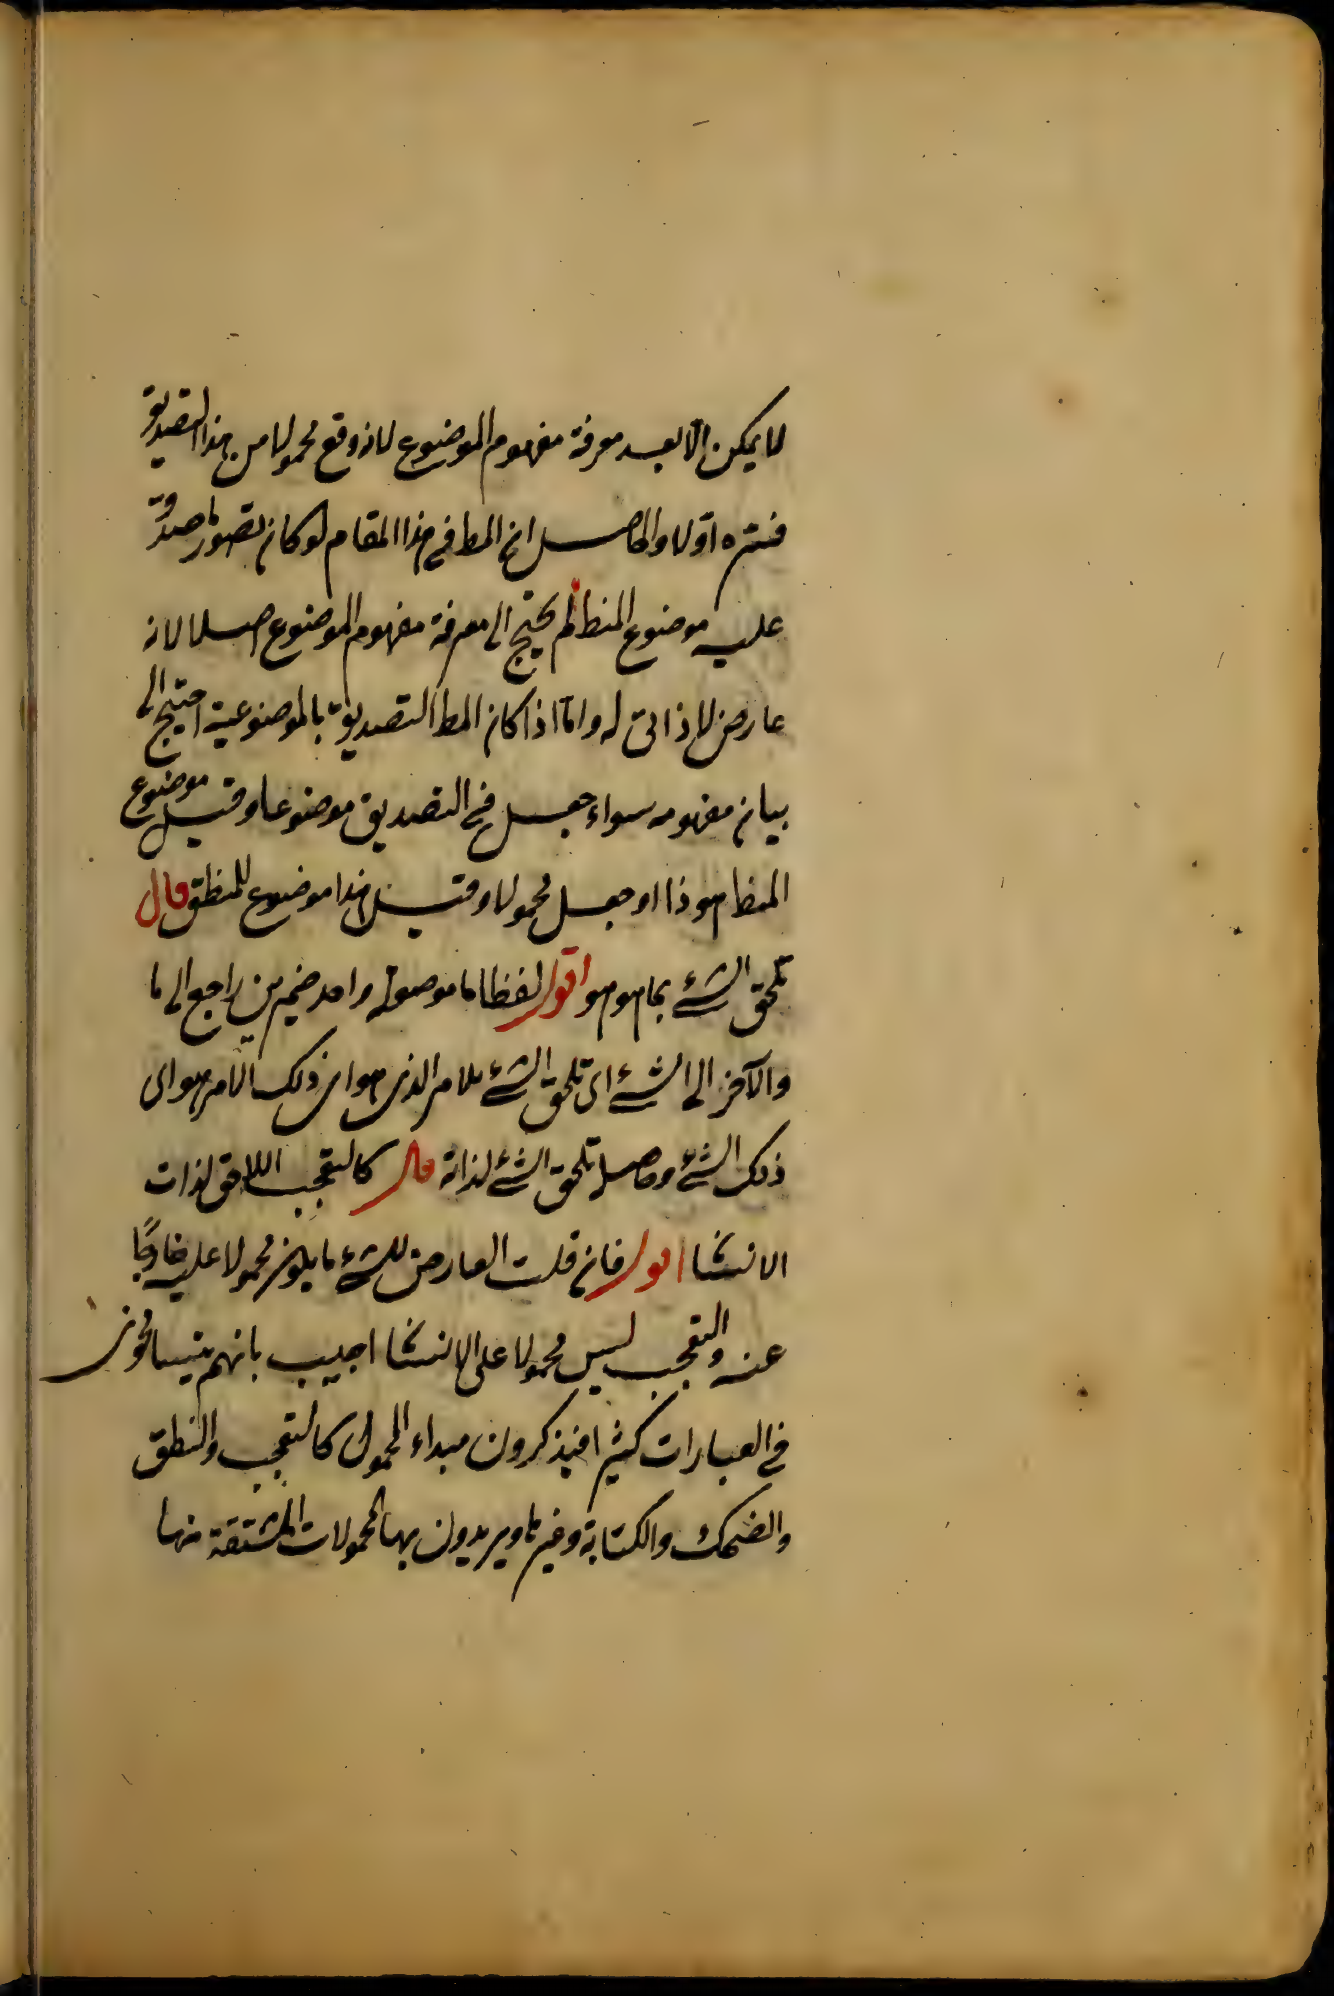 لا يمكن الا بعد معرفة مفهوم الموضوع لانه وقع محمولا من هذا التصديق
ففسره اولا والحاصل ان المط في هذا المقام لو كان تصور ما صدق
عليه موضوع المنط لم يحتج الى معرفة مفهوم الموضوع اصلا لانه
عارض لا ذاتى له واما اذا كان المط التصديق بالموضوعية احتيج الى
بيان مفهومه سواء جعل في التصديق موضوعا وقيل موضوع
المنط هو ذا او جعل محمولا وقيل هذا موضوع للمنطق قال
تلحق الشئ بما هو هو اقول لفظا ما موصولة واحد ضميرين راجع الى ما
والآخر الى الشئ اى تلحق الشئ للامر الذى هو اى ذلك الامر هو اى
ذلك الشئ وحاصله تلحق الشئ لذاته قال كالتعجب اللاحق لذات
الانسان اقول فان قلت العارض للشئ ما يكون محمولا عليه خارجًا
عنه والتعجب ليس محمولا على الانسان اجيب بانهم يتسامحون
في العبارات كثيرا فيذكرون مبداء المحمول كالتعجب والنطق
والضحك والكتابة وغيرها ويريدون بها المحمولات المشتقة منها